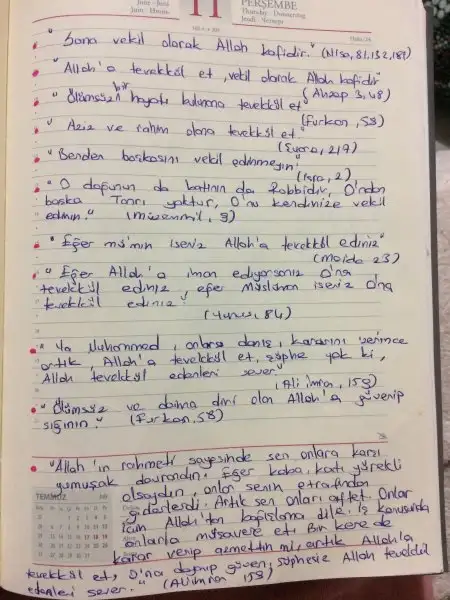 11
June - Juni
Juin - Июнь
PERŞEMBE
Thursday - Donnerstag
Jeudi - Четверг
" Sana vekil olarak Allah kafidir." (Nisa, 81, 132,
" Allah'a tevekkül et, vekil olarak Allah kafidir
( Ahzap 3, 48)
" Ölümsüz bir hayatı bulunana tevekkül et"
(Furkan, 58)
" Aziz ve rahim olana tevekkül et."
(Şuara, 219)
" Benden başkasını vekil edinmeyin."
(İsra, 2)
" O doğunun da batının da Rabbidir, O'ndan
başka Tanrı yoktur, O'nu kendinize vekil
edinin." (Müzemmil, 9)
" Eğer mü'min iseniz Allah'a tevekkül ediniz"
(Maide 23)
" Eğer Allah'a iman ediyorsanız O'na
tevekkül ediniz, eğer müslüman iseniz O'na
tevekkül ediniz"
(Yunus, 84)
" Ya Muhammed, onlara danış, kararını verince
artık, Allah'a tevekkül et, şüphe yok ki,
Allah tevekkül edenleri sever."
(Ali imran, 159)
" Ölümsüz ve daima diri olan Allah'a güvenip
sığının." (Furkan, 58)
" Allah'ın rahmeti sayesinde sen onlara karşı
yumuşak davrandın. Eğer kaba, katı yürekli
olsaydın, onlar senin etrafından
giderlerdi. Artık sen onları affet. Onlar
için Allah'tan bağışlama dile. İş konusunda
onlarla müşavere et. Bir kere de
karar verip azmettin mi, artık Allah'a
tevekkül et, O'na dayanıp güven, şüphesiz Allah tevekkül
edenleri sever." (Ali imran 159)
TEMMUZ